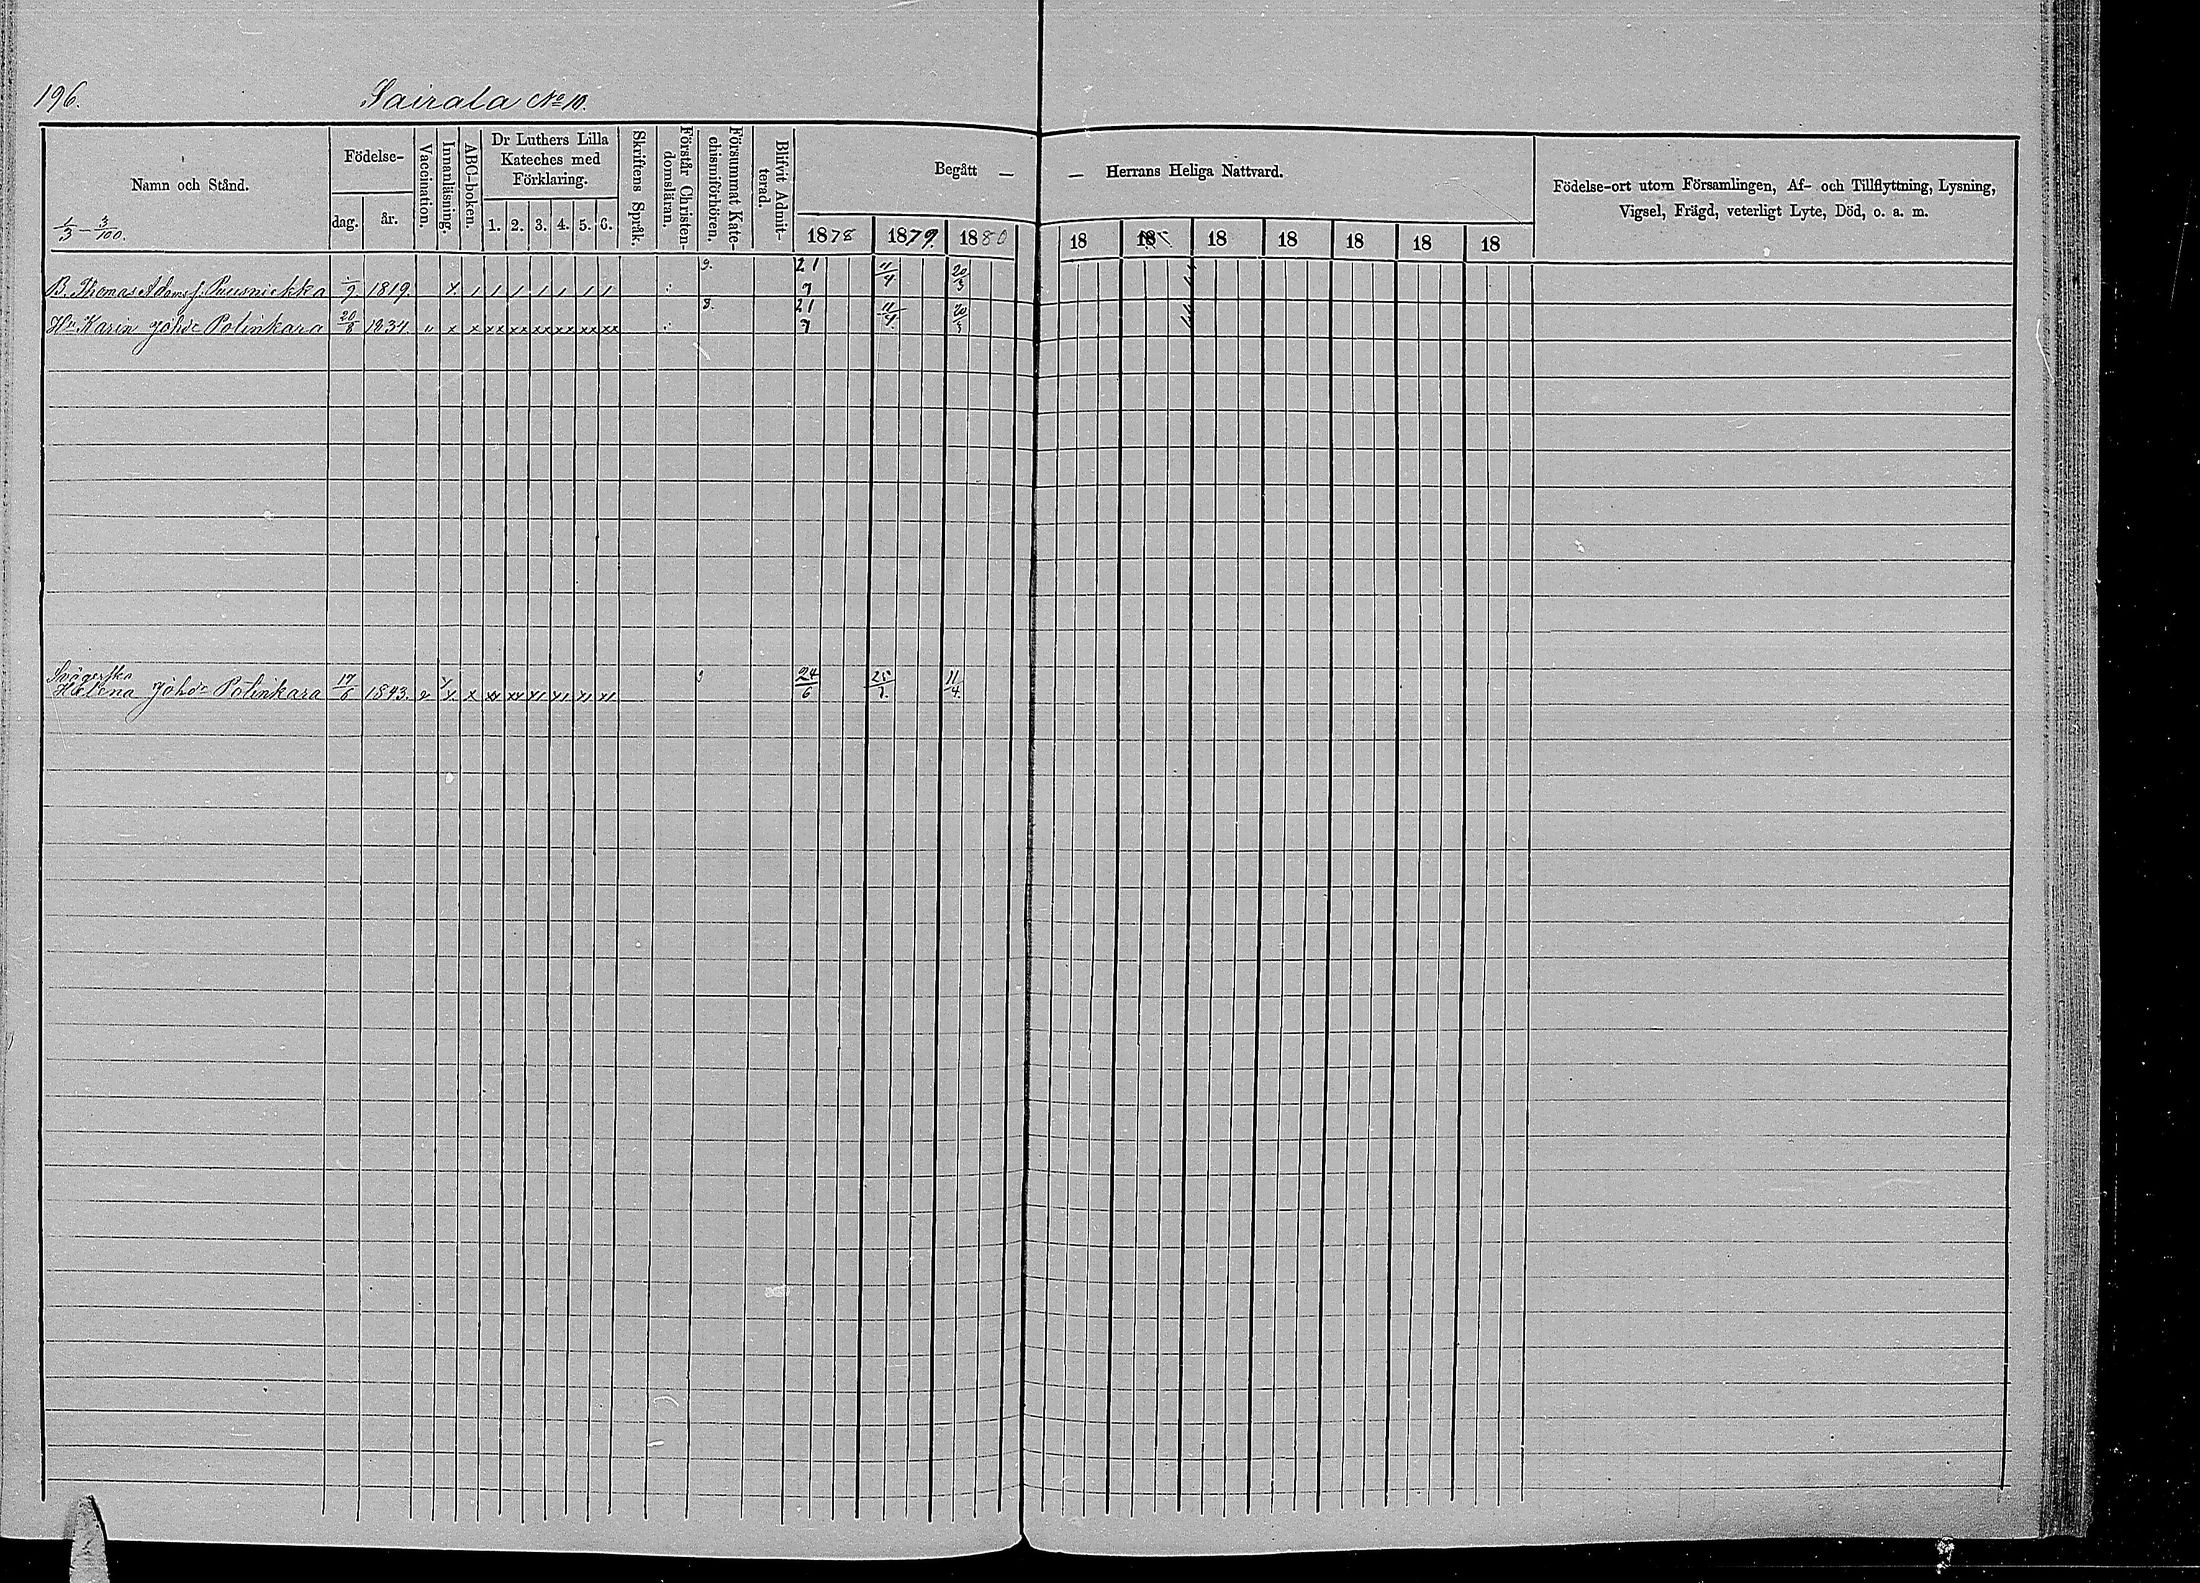 196. Sairala No 10.
Namn och Stånd.
1/3 - 3/100.
Födelse-
dag. år.
Vaccination.
Innanläsning.
ABC-boken.
Dr Luthers Lilla
Kateches med
Förklaring.
1. 2. 3. 4. 5. 6.
Skriftens Språk.
Förstår Christen-
domsläran.
Försummat Kate-
chismiförhören.
Blifvit Admit-
terad.
Begått — — Herrans Heliga Nattvard.
1878 1879. 1880 18 18 18 18 18 18 18
Födelse-ort utom Församlingen, Af- och Tillflyttning, Lysning,
Vigsel, Frägd, veterligt Lyte, Död, o. a. m.
B. Thomas Adamsf. Puusniekka 1819. 9. 21/7 11/4 20/3
Hu Karin Johdr Polinkara 20/8 1834. 8. 21/7 11/4 20/3
Svägerska
Helena Johdr Polinkara 17/6 1843. v x x xx xx x1 x1 x1 x1 24/6 25/7. 11/4.